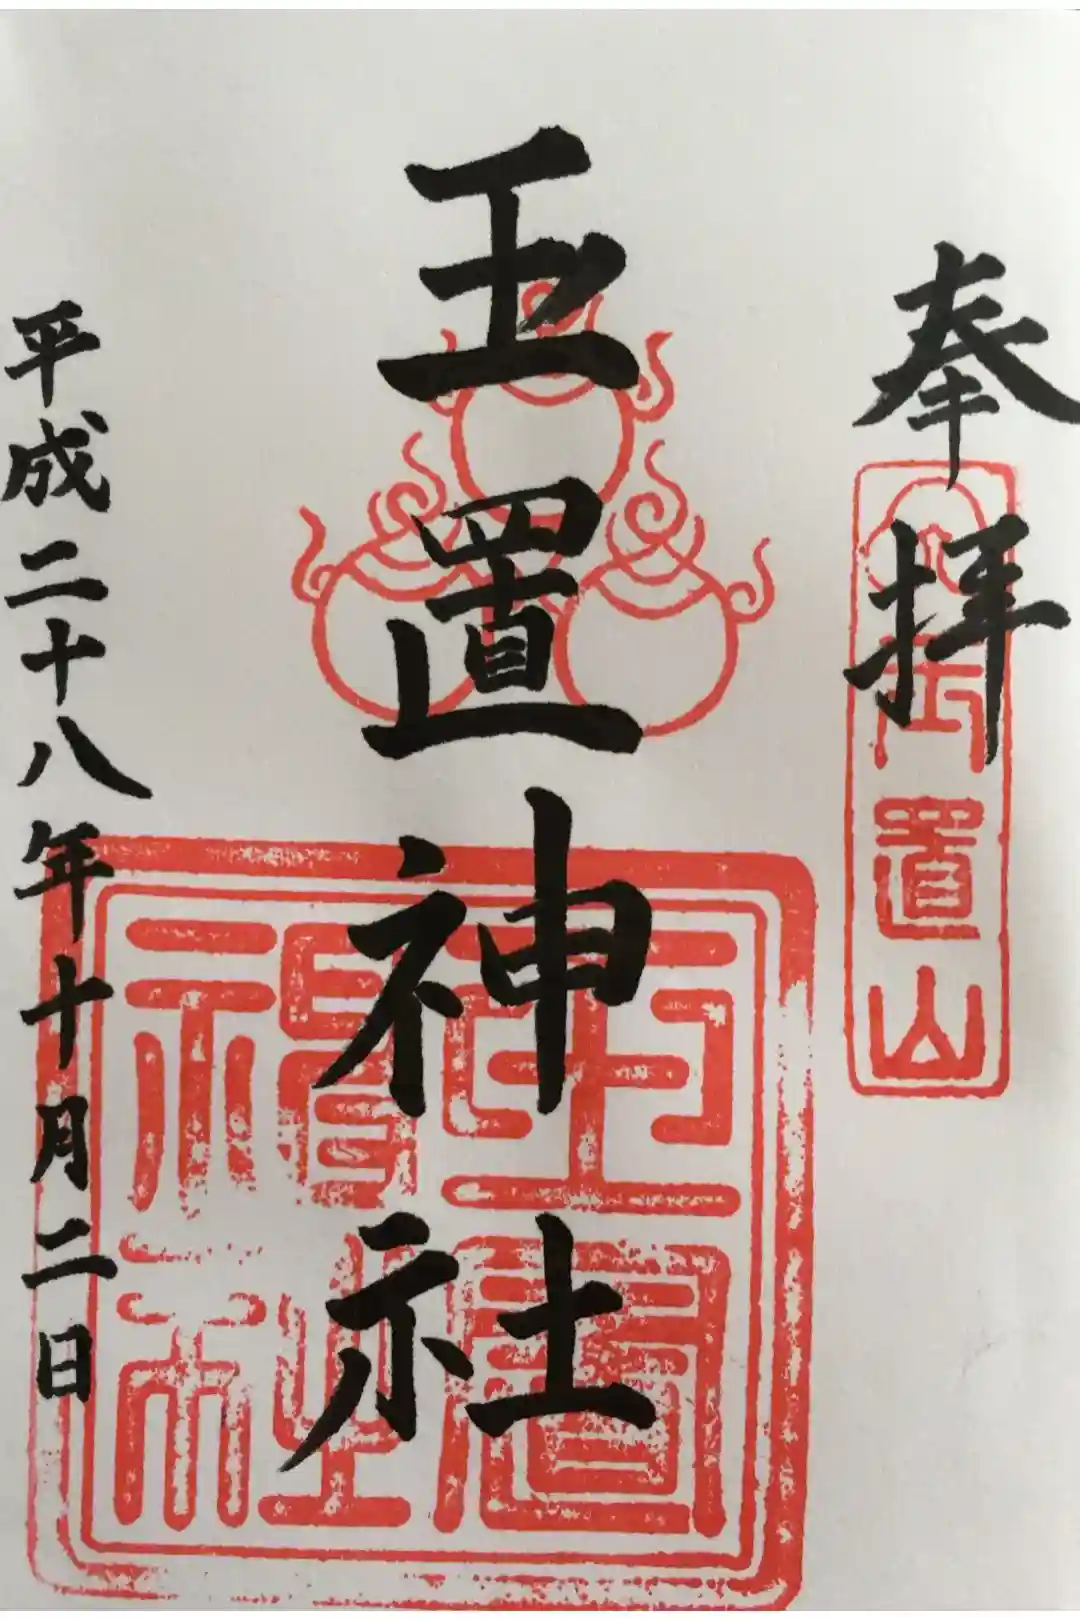 奉拝
玉置山
玉置神社
玉置
神社
平成二十八年十月二日